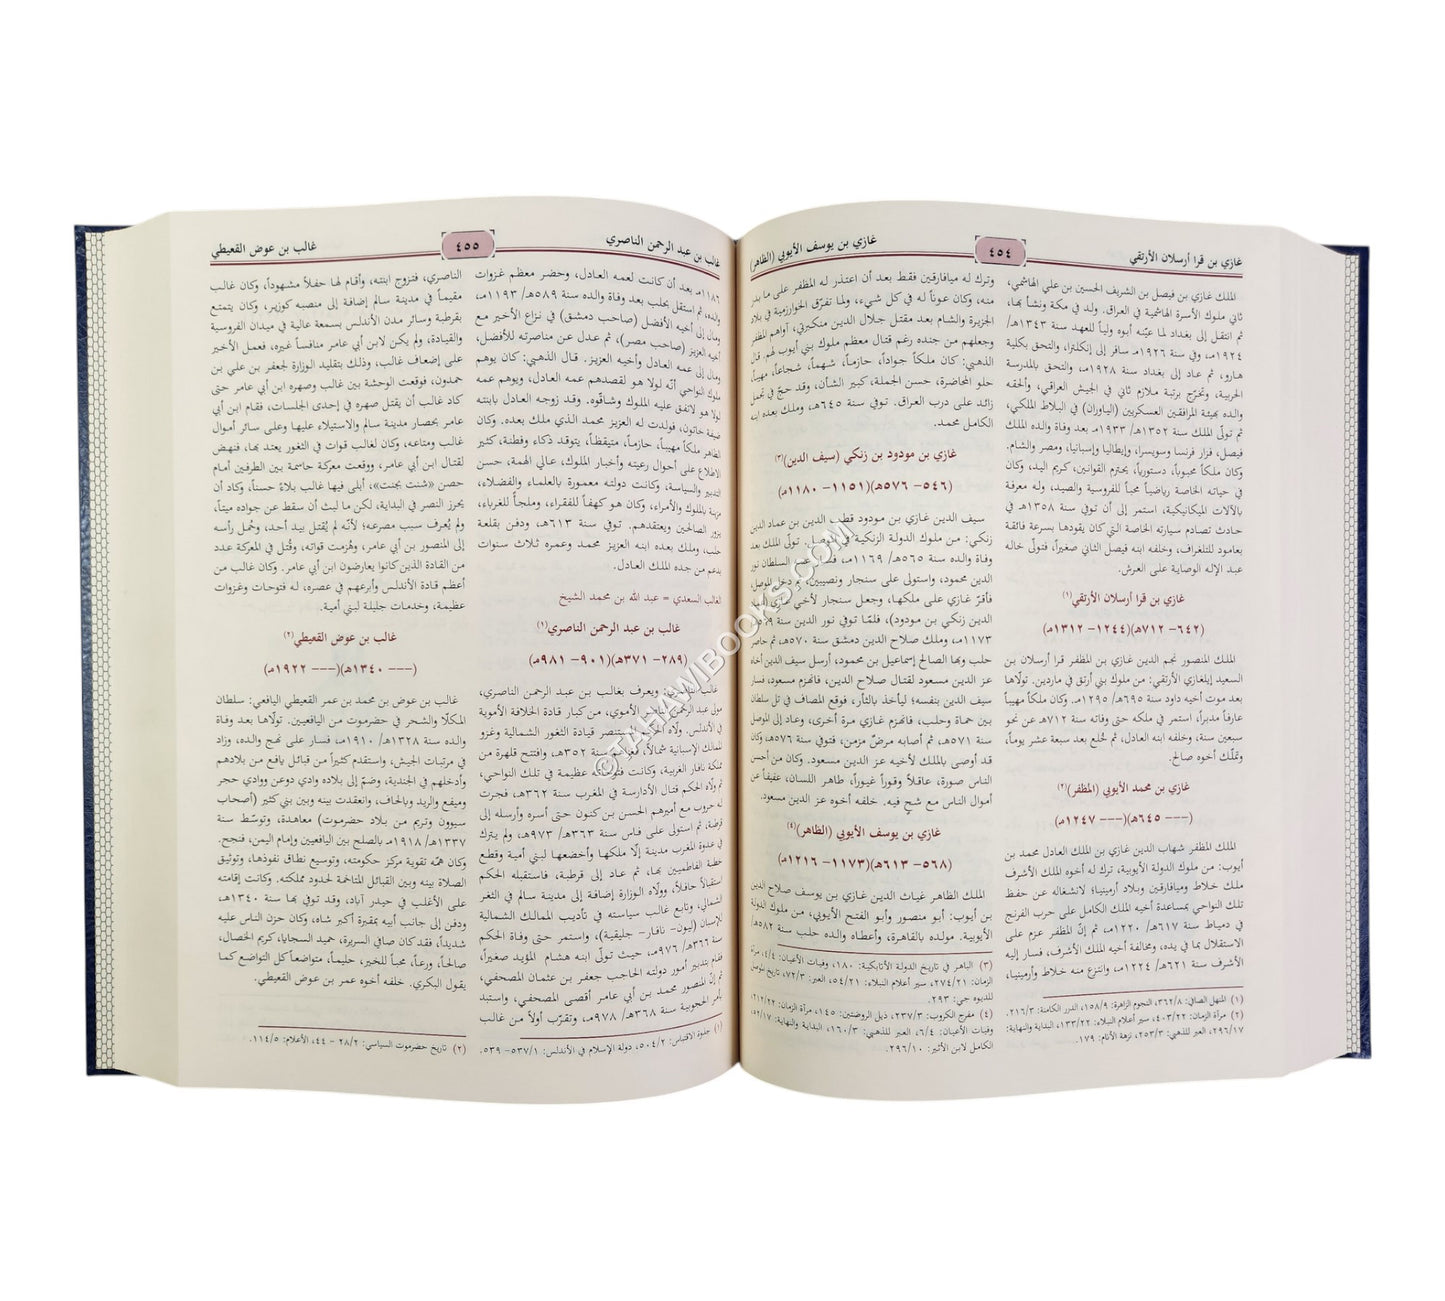 غازي بن قرا أرسلان الأرتقي
٤٥٤
غازي بن يوسف الأيوبي (الظاهر)
الملك غازي بن فيصل بن الشريف الحسين بن علي الهاشمي،
ثاني ملوك الأسرة الهاشمية في العراق. ولد في مكة ونشأ بها،
ثم انتقل إلى بغداد لما عيّنه أبوه ولياً للعهد سنة ١٣٤٣هـ/
١٩٢٤م، وفي سنة ١٩٢٦م سافر إلى إنكلترا، والتحق بكلية
هارو، ثم عاد إلى بغداد سنة ١٩٢٨م، والتحق بالمدرسة
الحربية، وتخرّج برتبة ملازم ثاني في الجيش العراقي، وألحقه
والده بهيئة المرافقين العسكريين (الياوران) في البلاط الملكي،
ثم تولّى الملك سنة ١٣٥٢هـ/ ١٩٣٣م بعد وفاة والده الملك
فيصل، فزار فرنسا وسويسرا، وإيطاليا وإسبانيا، ومصر والشام.
وكان ملكاً محبوباً، دستورياً، يحترم القوانين، كريم اليد، وكان
في حياته الخاصة رياضياً محباً للفروسية والصيد، وله معرفة
بالآلات الميكانيكية، استمر إلى أن توفي سنة ١٣٥٨هـ في
حادث تصادم سيارته الخاصة التي كان يقودها بسرعة فائقة
بعامود للتلغراف، وخلفه ابنه فيصل الثاني صغيراً، فتولّى خاله
عبد الإله الوصاية على العرش.
غازي بن قرا أرسلان الأرتقي(١)
(٦٤٢- ٧١٢هـ)(١٢٤٤- ١٣١٢م)
الملك المنصور نجم الدين غازي بن المظفر قرا أرسلان بن
السعيد إيلغازي الأرتقي: من ملوك بني أرتق في ماردين. تولّاها
بعد موت أخيه داود سنة ٦٩٥هـ/ ١٢٩٥م. وكان ملكاً مهيباً
عارفاً مدبراً، استمر في ملكه حتى وفاته سنة ٧١٢هـ عن نحو
سبعين سنة، وخلفه ابنه العادل، ثم خُلع بعد سبعة عشر يوماً،
وتملّك أخوه صالح.
غازي بن محمد الأيوبي (المظفر)(٢)
(--- ٦٤٥هـ)(--- ١٢٤٧م)
الملك المظفر شهاب الدين غازي بن الملك العادل محمد بن
أيوب: من ملوك الدولة الأيوبية، ترك له أخوه الملك الأشرف
ملك خلاط وميافارقين وبلاد أرمينيا؛ لانشغاله عن حفظ
تلك النواحي بمساعدة أخيه الملك الكامل على حرب الفرنج
في دمياط سنة ٦١٧هـ/ ١٢٢٠م، ثم إنّ المظفر عزم على
الاستقلال بما في يده، ومخالفة أخيه الملك الأشرف، فسار إليه
الأشرف سنة ٦٢١هـ/ ١٢٢٤م، وانتزع منه خلاط وأرمينيا،
(١) المنهل الصافي: ٣٦٢/٨، النجوم الزاهرة: ١٥٨/٩، الدرر الكامنة: ٢١٦/٣.
(٢) مرآة الزمان: ٤٠٣/٢٢، سير أعلام النبلاء: ١٣٣/٢٢، البداية والنهاية:
٢٩٦/١٧، العبر للذهبي: ٢٥٣/٣، نزهة الأنام: ١٧٩.
وترك له ميافارقين فقط بعد أن اعتذر له المظفر على ما بدر
منه، وكان عوناً له في كل شيء، ولما تفرّق الخوارزمية في بلاد
الجزيرة والشام بعد مقتل جلال الدين منكبرتي، آواهم المظفر
وجعلهم من جنده رغم قتال معظم ملوك بني أيوب لهم. قال
الذهبي: كان ملكاً جواداً، حازماً، شهماً، شجاعاً، مهيباً،
حلو المحاضرة، حسن الجملة، كبير الشأن، وقد حجّ في تجمّل
زائد على درب العراق. توفي سنة ٦٤٥هـ، وملك بعده ابنه
الكامل محمد.
غازي بن مودود بن زنكي (سيف الدين)(٣)
(٥٤٦- ٥٧٦هـ)(١١٥١- ١١٨٠م)
سيف الدين غازي بن مودود قطب الدين بن عماد الدين
زنكي: من ملوك الدولة الزنكية في الموصل. تولّى الملك بعد
وفاة والده سنة ٥٦٥هـ/ ١١٦٩م، السلطان نور
الدين محمود، واستولى على سنجار ونصيبين، دخل الموصل
فأقرّ غازي على ملكها، وجعل سنجار لأخي غازي
الدين زنكي بن مودود)، فلمّا توفي نور الدين سنة
١١٧٣م، وملك صلاح الدين دمشق سنة ٥٧٠هـ، ثم حاصر
حلب وبها الصالح إسماعيل بن محمود، أرسل سيف الدين أخاه
عز الدين مسعود لقتال صلاح الدين، فانهزم مسعود، فسار
سيف الدين بنفسه؛ ليأخذ بالثأر، فوقع المصاف في تل سلطان
بين حماة وحلب، فانهزم غازي مرة أخرى، وعاد إلى الموصل
سنة ٥٧١هـ، ثم أصابه مرض مزمن، فتوفي سنة ٥٧٦هـ، وكان
قد أوصى بالملك لأخيه عز الدين مسعود. وكان من أحسن
الناس صورة، عاقلاً وقوراً غيوراً، طاهر اللسان، عفيفاً عن
أموال الناس مع شحٍ فيه. خلفه أخوه عز الدين مسعود.
غازي بن يوسف الأيوبي (الظاهر)(٤)
(٥٦٨- ٦١٣هـ)(١١٧٣- ١٢١٦م)
الملك الظاهر غياث الدين غازي بن يوسف صلاح الدين
بن أيوب: أبو منصور وأبو الفتح الأيوبي، من ملوك الدولة
الأيوبية. مولده بالقاهرة، وأعطاه والده حلب سنة ٥٨٢هـ/
(٣) الباهر في تاريخ الدولة الأتابكية: ١٨٠، وفيات الأعيان: ٤/٤، مرآة
الزمان: ٢٧٤/٢١، سير أعلام النبلاء: ٥٤/٢١، العبر: ٧٢/٣، تاريخ الموصل
للديوه جي: ٢٩٣.
(٤) مفرج الكروب: ٢٣٧/٣، ذيل الروضتين: ١٤٥، مرآة الزمان: ٢١٢/٢٢،
وفيات الأعيان: ٦/٤، العبر للذهبي: ١٦٠/٣، البداية والنهاية: ٥٢/١٧،
الكامل لابن الأثير: ٢٩٦/١٠.
غالب بن عبد الرحمن الناصري
٤٥٥
غالب بن عوض القعيطي
١١٨٦م بعد أن كانت لعمه العادل، وحضر معظم غزوات
والده، ثم استقل بحلب بعد وفاة والده سنة ٥٨٩هـ/ ١١٩٣م،
ومال إلى أخيه الأفضل (صاحب دمشق) في نزاع الأخير مع
أخيه العزيز (صاحب مصر)، ثم عدل عن مناصرته للأفضل،
ومال إلى عمه العادل وأخيه العزيز. قال الذهبي: كان يوهم
ملوك النواحي أنّه لولا هو لقصدهم عمه العادل، ويوهم عمه
لولا هو لاتفق عليه الملوك وشاقّوه. وقد زوجه العادل بابنته
ضيفة خاتون، فولدت له العزيز محمد الذي ملك بعده. وكان
الظاهر ملكاً مهيباً، حازماً، متيقظاً، يتوقد ذكاء وفطنة، كثير
الاطلاع على أحوال رعيته وأخبار الملوك، عالي الهمة، حسن
التدبير والسياسة، وكانت دولته معمورة بالعلماء والفضلاء،
مزينة بالملوك والأمراء، وكان هو كهفاً للفقراء، وملجأ للغرباء،
يزور الصالحين ويعتقدهم. توفي سنة ٦١٣هـ، ودفن بقلعة
حلب، وملك بعده ابنه العزيز محمد وعمره ثلاث سنوات
بدعم من جده الملك العادل.
الغالب السعدي = عبد الله بن محمد الشيخ
غالب بن عبد الرحمن الناصري(١)
(٢٨٩- ٣٧١هـ)(٩٠١- ٩٨١م)
غالب الناصري، ويعرف بغالب بن عبد الرحمن الناصري،
مولى عبد الرحمن الأموي، من كبار قادة الخلافة الأموية
في الأندلس. ولّاه المستنصر قيادة الثغور الشمالية وغزو
الممالك الإسبانية شمالاً، سنة ٣٥٢هـ، وافتتح قلهرة من
مملكة نافار الغربية، وكانت عظيمة في تلك النواحي،
ثم ولّاه الحكم قتال الأدارسة في المغرب سنة ٣٦٢هـ، فجرت
له حروب مع أميرهم الحسن بن كنون حتى أسره وأرسله إلى
قرطبة، ثم استولى على فاس سنة ٣٦٣هـ/ ٩٧٣م، ولم يترك
في عدوة المغرب مدينة إلّا ملكها وأخضعها لبني أمية وقطع
خطبة الفاطميين بها، ثم عاد إلى قرطبة، فاستقبله الحكم
استقبالاً حافلاً، وولّاه الوزارة إضافة إلى مدينة سالم في الثغر
الشمالي، وتابع غالب سياسته في تأديب الممالك الشمالية
الإسبان (ليون- نافار- جليقية)، واستمر حتى وفاة الحكم
سنة ٣٦٦هـ/ ٩٧٦م، حيث تولّى ابنه هشام المؤيد صغيراً،
فقام بتدبير أمور دولته الحاجب جعفر بن عثمان المصحفي،
ثم إنّ المنصور محمد بن أبي عامر أقصى المصحفي، واستبد
بأمر الحجوبية سنة ٣٦٨هـ/ ٩٧٨م، وتقرّب أولاً من غالب
(١) جذوة الاقتباس: ٥٠٤/٢، دولة الإسلام في الأندلس: ٥٣٧/١- ٥٣٩.
الناصري، فتزوج ابنته، وأقام لها حفلاً مشهوداً، وكان غالب
مقيماً في مدينة سالم إضافة إلى منصبه كوزير، وكان يتمتع
بقرطبة وسائر مدن الأندلس بسمعة عالية في ميدان الفروسية
والقيادة، ولم يكن لابن أبي عامر منافساً غيره، فعمل الأخير
على إضعاف غالب، وذلك بتقليد الوزارة لجعفر بن علي بن
حمدون، فوقعت الوحشة بين غالب وصهره ابن أبي عامر حتى
كاد غالب أن يقتل صهره في إحدى الجلسات، فقام ابن أبي
عامر بحصار مدينة سالم والاستيلاء عليها وعلى سائر أموال
غالب ومتاعه، وكان لغالب قوات في الثغور يعتد بها، فنهض
لقتال ابن أبي عامر، ووقعت معركة حاسمة بين الطرفين أمام
حصن «شنت بجنت»، أبلى فيها غالب بلاءً حسناً، وكاد أن
يحرز النصر في البداية، لكن ما لبث أن سقط عن جواده ميتاً،
ولم يُعرف سبب مصرعه؛ لأنّه لم يُقتل بيد أحد، وحُمل رأسه
إلى المنصور بن أبي عامر، وهُزمت قواته، وقُتل في المعركة عدد
من القادة الذين كانوا يعارضون ابن أبي عامر. وكان غالب من
أعظم قادة الأندلس وأبرعهم في عصره، له فتوحات وغزوات
عظيمة، وخدمات جليلة لبني أمية.
غالب بن عوض القعيطي(٢)
(--- ١٣٤٠هـ)(--- ١٩٢٢م)
غالب بن عوض بن محمد بن عمر القعيطي اليافعي: سلطان
المكلّا والشحر في حضرموت من اليافعيين. تولّاها بعد وفاة
والده سنة ١٣٢٨هـ/ ١٩١٠م، فسار على نهج والده، وزاد
في مرتبات الجيش، واستقدم كثيراً من قبائل يافع من بلادهم
وأدخلهم في الجندية، وضمّ إلى بلاده وادي دوعن ووادي حجر
وميفع والريد وبالحاف، وانعقدت بينه وبين بني كثير (أصحاب
سيوون وتريم من بلاد حضرموت) معاهدة، وتوسّط سنة
١٣٣٧هـ/ ١٩١٨م بالصلح بين اليافعيين وإمام اليمن، فنجح.
وكان همّه تقوية مركز حكومته، وتوسيع نطاق نفوذها، وتوثيق
الصلاة بينه وبين القبائل المتاخمة لحدود مملكته. وكانت إقامته
على الأغلب في حيدر آباد، وقد توفي بها سنة ١٣٤٠هـ،
ودفن إلى جانب أبيه بمقبرة أكبر شاه، وكان حزن الناس عليه
شديداً، فقد كان صافي السريرة، حميد السجايا، كريم الخصال،
صالحاً، ورعاً، محباً للخير، حليماً، متواضعاً كل التواضع كما
يقول البكري. خلفه أخوه عمر بن عوض القعيطي.
(٢) تاريخ حضرموت السياسي: ٢٨/٢ - ٤٤، الأعلام: ١١٤/٥.
©TAHAWIBOOKS.COM